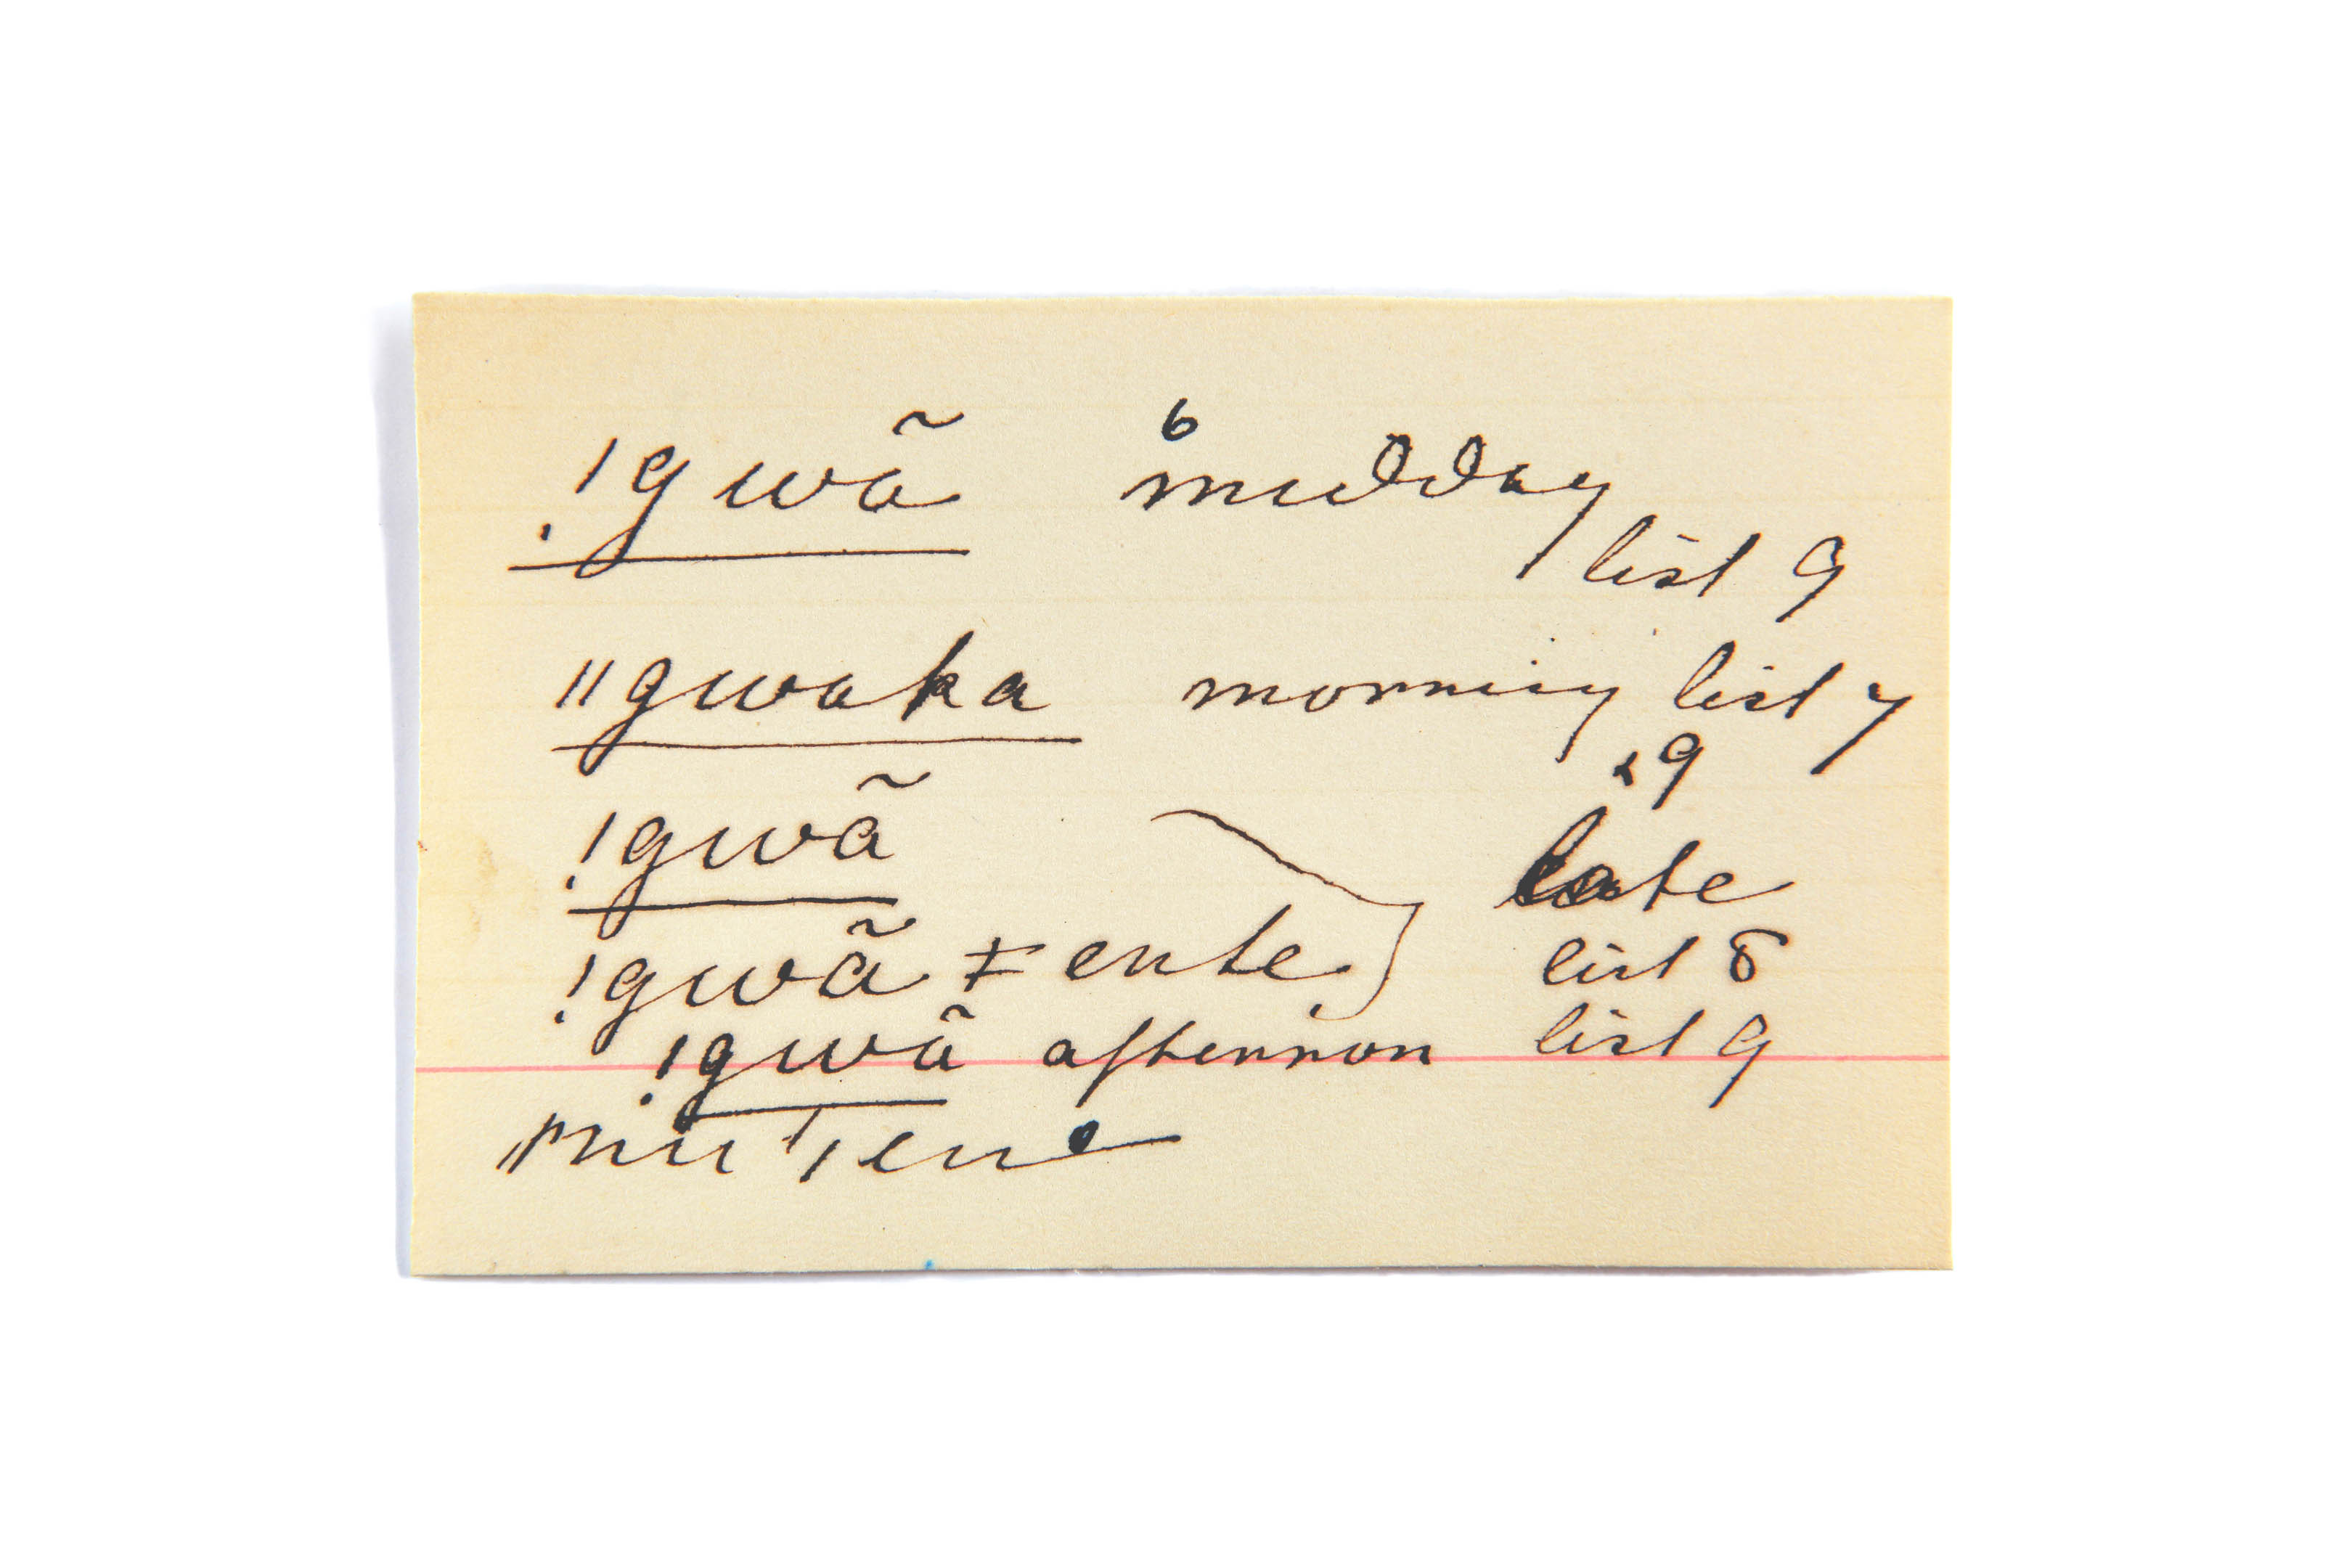 !gwã 6 midday
list 9
ǁgwaka morning list 7
& 9
!gwã late
!gwã ǂente list 8
!gwã afternoon list 9